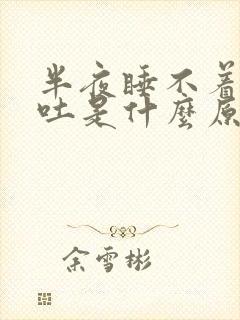 半夜睡不着
吐是什麼原
余雪彬